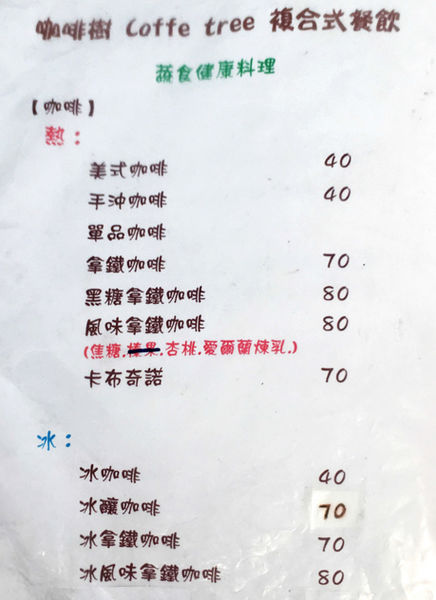 咖啡樹 Coffe tree 複合式餐飲
蔬食健康料理
【咖啡】
熱：
美式咖啡 40
手沖咖啡 40
單品咖啡
拿鐵咖啡 70
黑糖拿鐵咖啡 80
風味拿鐵咖啡 80
(焦糖.榛果.杏桃.愛爾蘭煉乳.)
卡布奇諾 70
冰：
冰咖啡 40
冰釀咖啡 70
冰拿鐵咖啡 70
冰風味拿鐵咖啡 80